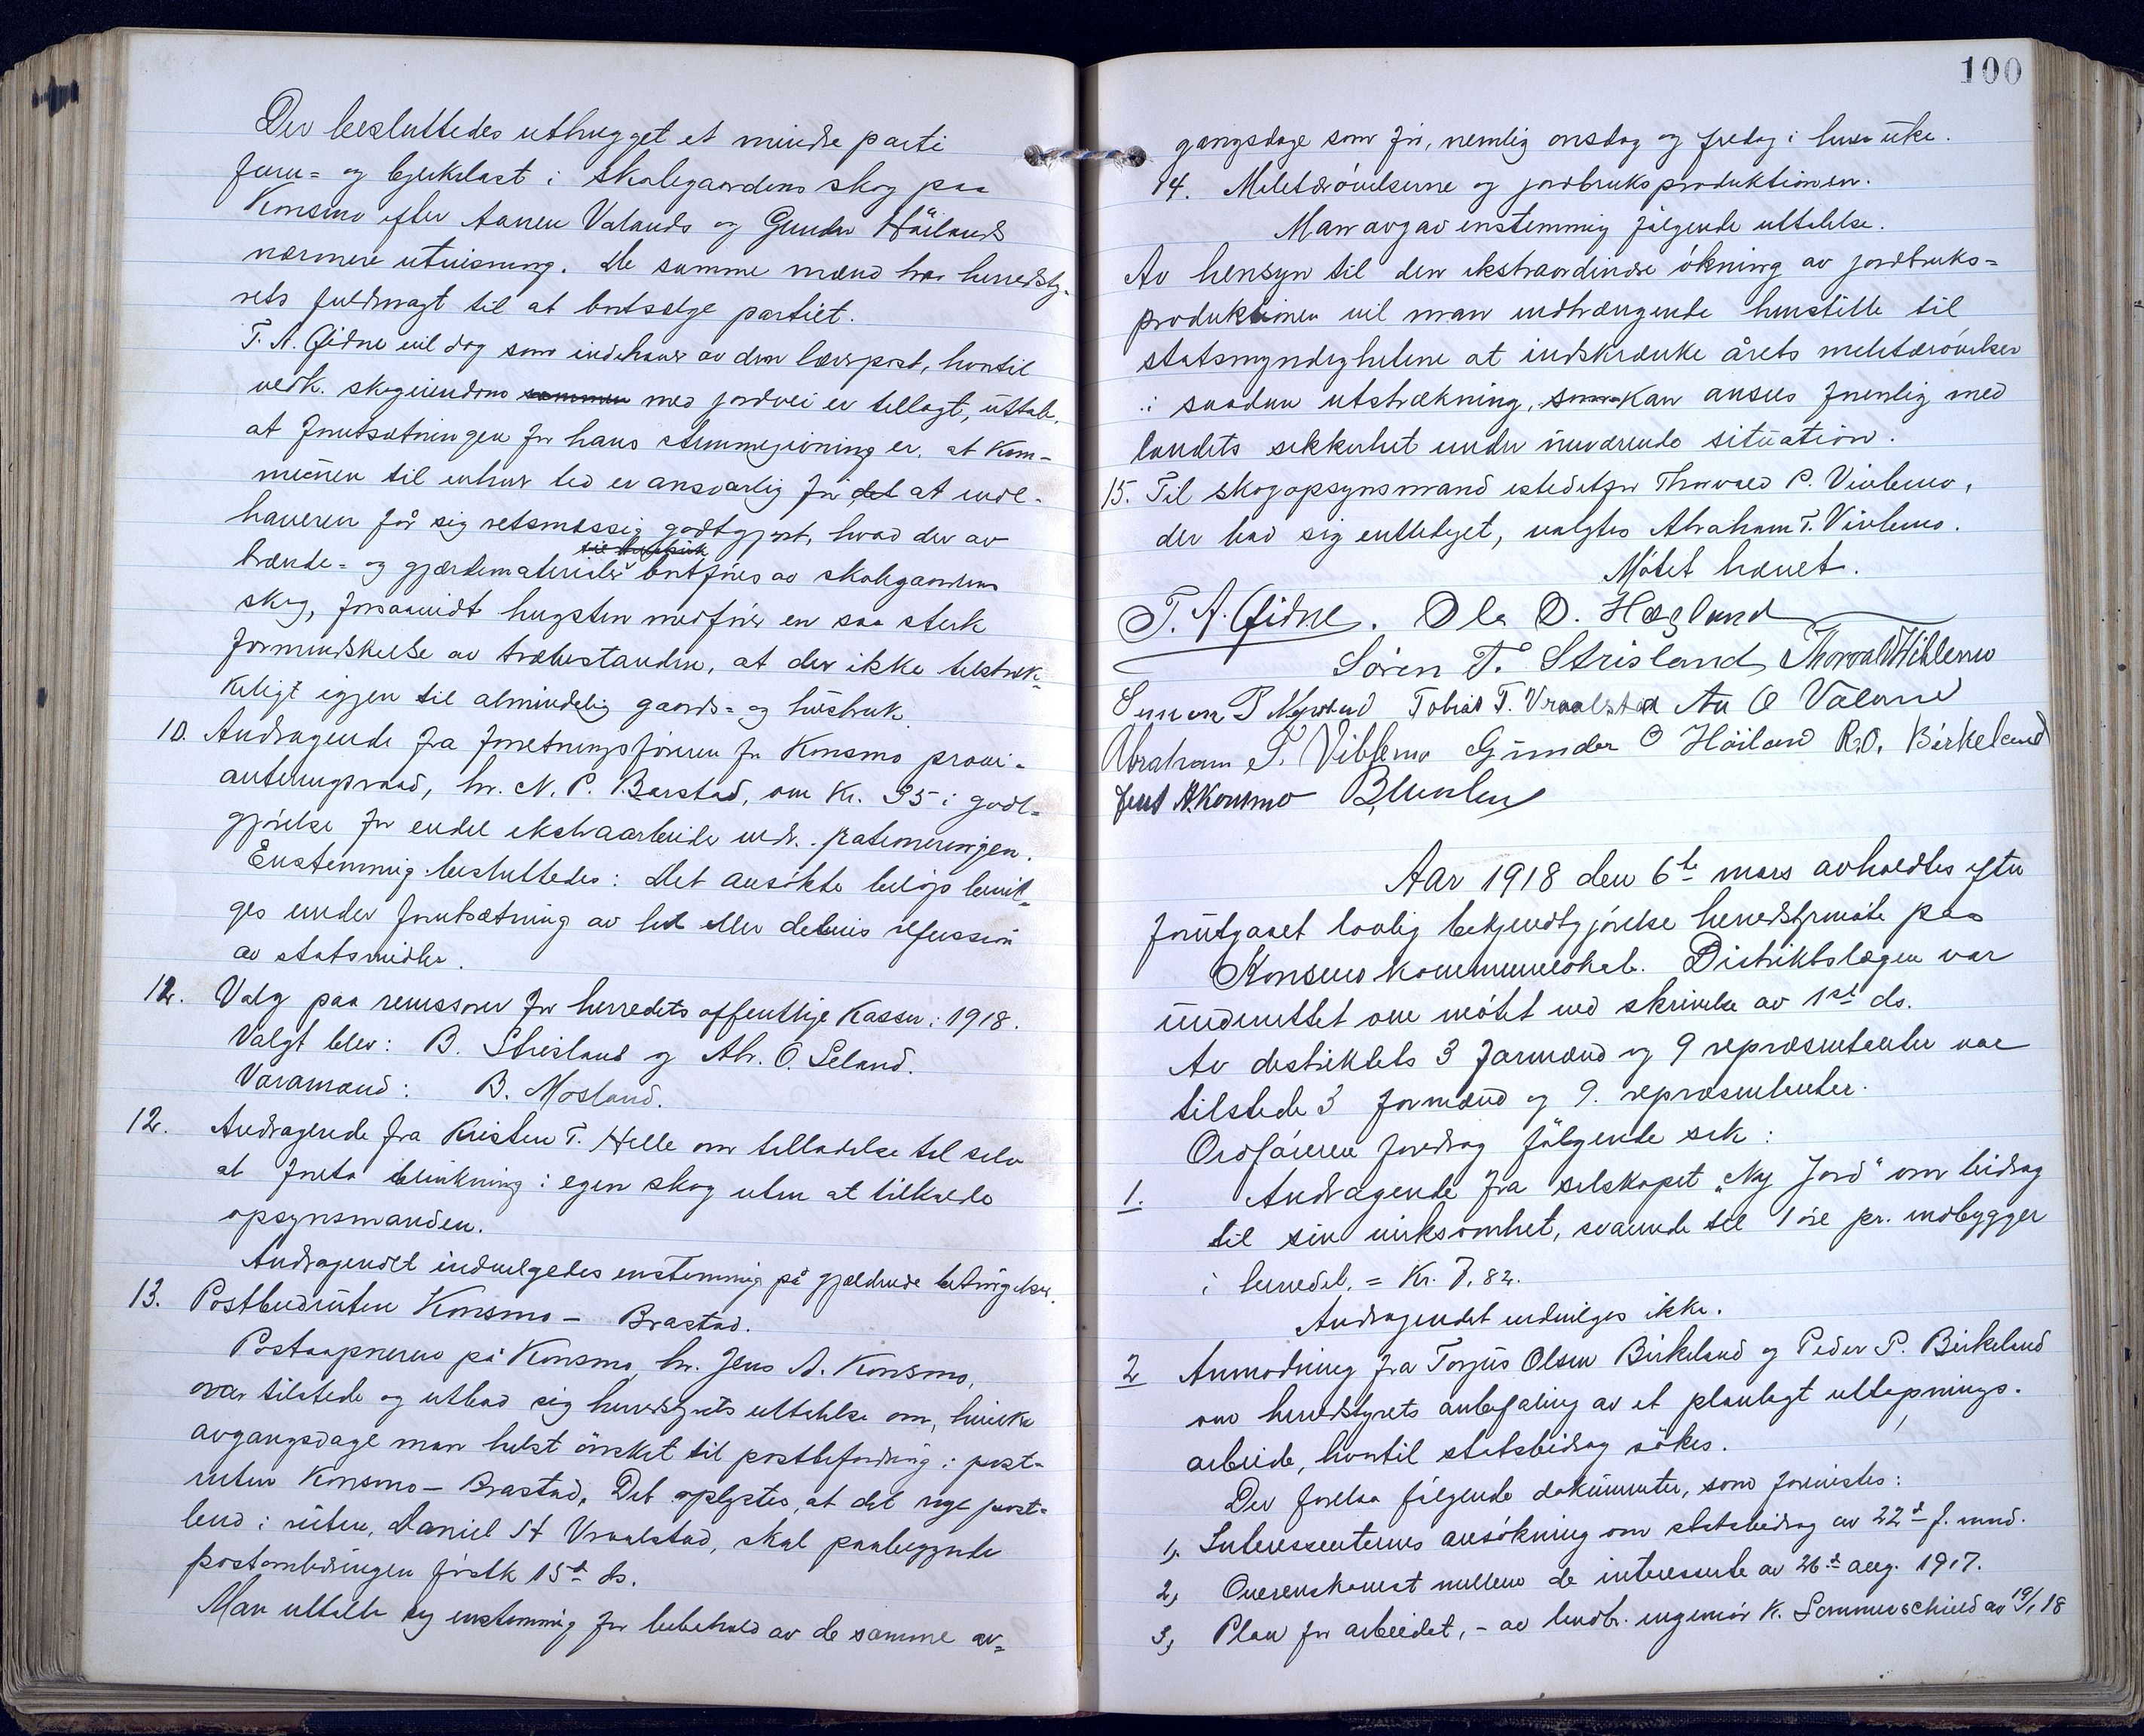 Der besluttedes uthugget et mindre parti
furu- og bjerkelast i skolegaardens skog paa
Konsmo efter Aanen Valands og Gunder Høilands
nærmere utvisning. De samme mænd har herredsty-
rets fuldmagt til at bortsælge partiet.
T. A. Eidne vil dog som indehaver av den lærerpost, hvortil
vedk. skogeiendom sammen med jordvei er tillagt, uttale,
at forutsætningen for hans stemmegivning er, at kom-
munen til enhver tid er ansvarlig for det at inde-
haveren får sig retsmæssig godtgjort, hvad der av
til husbruk
brænde- og gjærdematerialer bortføres av skolegaardens
skog, forsaavidt hugsten medfører en saa sterk
formindskelse av træbestanden, at der ikke tilstræk-
keligt igjen til almindelig gaards- og husbruk.
10. Andragende fra forretningsføreren for Konsmo provi-
anteringsraad, hr. N. P. Barstad, om Kr. 35 i godt-
gjørelse for endel ekstraarbeide vedr. rationeringen.
Enstemmig besluttedes: Det ansøkte beløp bevil-
ges under forutsætning av hel eller delvis refussion
av statsmidler.
12. Valg paa revissorer for herredets offentlige kasser i 1918.
Valgt blev: B. Strisland og Abr. O. Seland.
Varamænd: B. Mosland.
12. Andragende fra Kristen T. Helle om tilladelse til selv
at foreta blinkning i egen skog uten at tilkalde
opsynsmanden.
Andragendet indvilgedes enstemmig på gjældende betingelser.
13. Postbudruten Konsmo - Brastad.
Postaapneren på Konsmo, hr. Jens A. Konsmo,
var tilstede og utbad sig herredsstyrets uttalelse om, hvilke
avgangsdage man helst ønsket til postbefordring i post-
ruten Konsmo - Brastad. Det oplystes, at det nye post-
bud i ruten, Daniel St Vraalstad, skal paabegynde
postombæringen førstk 15de ds.
Man uttalte sig enstemmig for bibehold av de samme av-
100
gangsdage som før, nemlig onsdag og fredag i hver uke.
14. Militærøvelserne og jordbruksproduktionen.
Man avgav enstemmig følgende uttalelse.
Av hensyn til den ekstraordinære økning av jordbruks-
produktionen vil man indtrængende henstille til
statsmyndighetene at indskrænke årets militærøvelser
i saadan utstrækning, som kan ansees forenlig med
landets sikkerhet under nuværende situation.
15. Til skogopsynsmand istedetfor Thorvald P. Viblemo,
der bad sig entlediget, valgtes Abraham T. Viblemo.
Møtet hævet.
T. A. Eidne. Ola O. Hægland
Søren T. Strisland Thorvald Viblemo
Simon P Myrstad Tobias T. Vraalstad Aa O Valand
Abraham T. Viblemo Gunder O Høiland R. O. Birkeland
Jens A Konsmo
Aar 1918 den 6te mars avholdtes efter
forutgaaet lovlig bekjendtgjørelse herredsstyrmøte paa
Konsmo kommunelokale. Distriktslægen var
underrettet om møtet ved skrivelse av 1ste ds.
Av distriktets 3 formænd og 9 repræsentanter var
tilstede 3 formænd og 9. repræsentanter.
Ordføreren foredrog følgende sak:
1. Andragende fra selskapet "Ny Jord" om bidrag
til sin virksomhet, svarende til 1 øre pr. indbygger
i herredet. = Kr. 7,82.
Andragendet indvilges ikke.
2 Anmodning fra Torjus Olsen Birkeland og Peder P. Birkeland
om herredsstyrets anbefaling av et planlagt uttapnings-
arbeide, hvortil statsbidrag søkes.
Der forelaa følgende dokumenter, som forevistes:
1, Interessenternes ansøkning om statsbidrag av 22de f. mnd.
2, Overenskomst mellem de interesserte av 26de aug. 1917.
3, Plan for arbeidet, - av landbr. ingeniør K. Sommerschield av 19/1 18